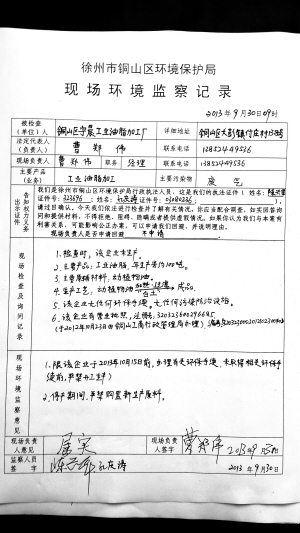 徐州市铜山区环境保护局
现场环境监察记录
2013年9月30日09时
被检查(单位)人 铜山区宇晨工业油脂加工厂 详细地址 铜山区大彭镇付庄村138号
法定代表人(负责人) 曹郑伟 联系电话 13852449536
现场负责人 曹郑伟 职务 经理 联系电话 13852449536
主要产品(业务) 工业油脂加工 主要污染物 废气
告知权力义务 出示证件
我们是徐州市铜山区环境保护局行政执法人员,这是我们的执法证件(姓名:
证件号:323696 ;姓名:孔庆涛 证件号:03080206 ),
请过目确认。今天我们依法进行检查并了解有关情况,你应当配合调查,如实回答询
问和提供材料,不得拒绝、阻碍、隐瞒或者提供虚假情况。如果你认为我们与本案有
利害关系,可能影响公正办案,可以申请我们回避,并说明理由。
现场负责人是否申请回避 不申请
现场检查及询问记录
1.检查时,该企业未生产。
2.主要产品:工业油脂,年生产等约100吨。
3.主要原辅材料:动植物油。
4.生产工艺:动植物油 成品。
5.该企业无任何环保手续,无任何污染防治设施。
6.该企业有营业执照,注册号:320323600296695
(于2012年10月23日由铜山工商行政管理局办理)
现场环境监察意见
1.限该企业于2013年10月15日前,办理有关环保手续,未取得相关环保手
续前,严禁开工生产!
2.停产期间,严禁购置新生产原料。
现场负责人意见 属实 现场负责人签字 曹郑伟 2013年9月30日
监察人员签字 孔庆涛 2013年9月30日